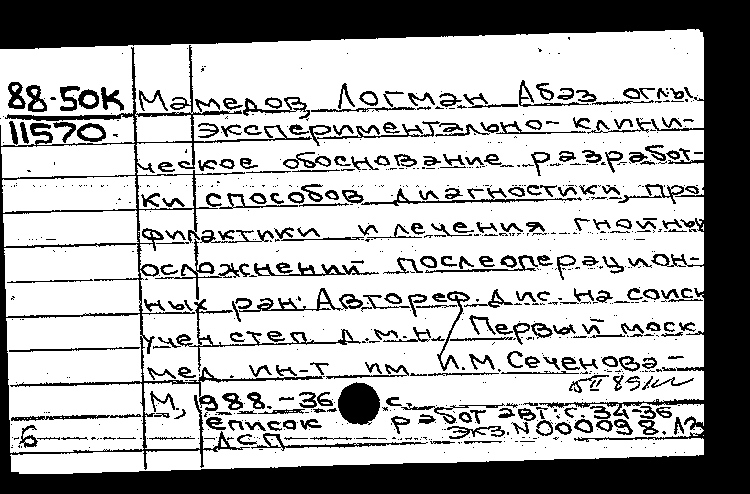 88-50К Мамедов, Логман Абаз оглы.
11570. Экспериментально-клини-
ческое обоснование разработ-
ки способов диагностики, про-
филактики и лечения гнойных
осложнений послеоперацион-
ных ран: Автореф. дис. на соиск
учен. степ. д.м.н. / Первый моск.
мед. ин-т им. И.М. Сеченова-
М, 1988.-36 с.
список работ авт: с. 34-36
6 ДСП Экз. N 000098.